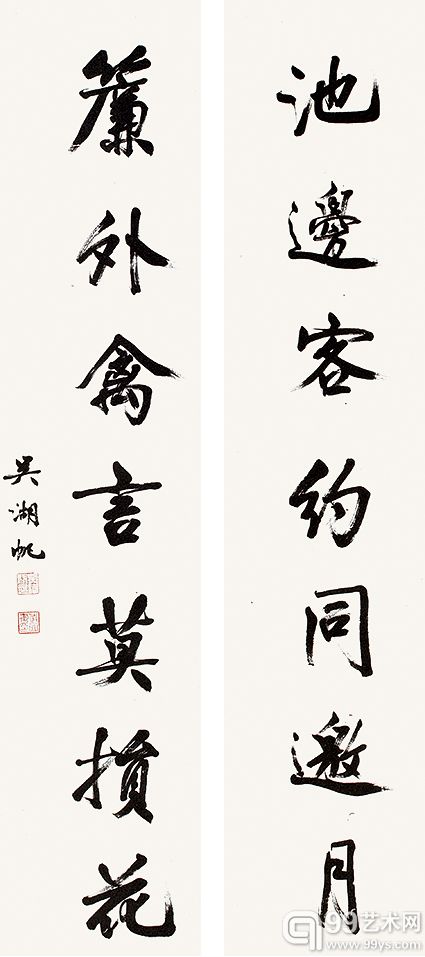 池邊客約同邀月
簾外禽言莫損花
吳湖帆
99艺术网
www.99ys.com